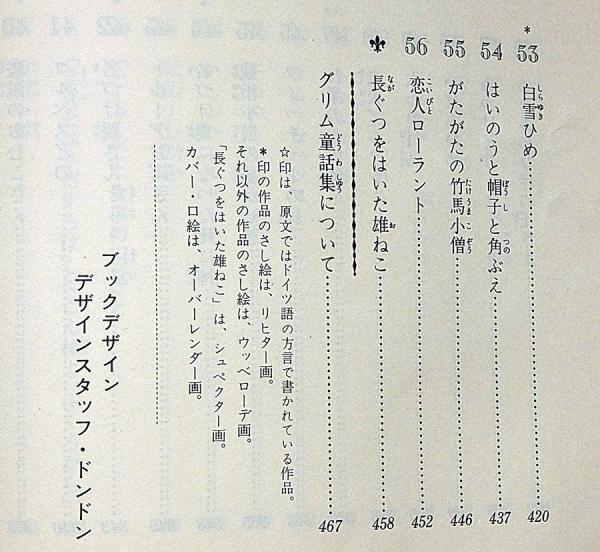 *53 白雪ひめ……420
54 はいのうと帽子と角ぶえ……437
55 がたがたの竹馬小僧……446
56 恋人ローラント……452
⚜ 長ぐつをはいた雄ねこ……458
グリム童話集について……467
☆印は、原文ではドイツ語の方言で書かれている作品。
*印の作品のさし絵は、リヒター画。
それ以外の作品のさし絵は、ウッベローデ画。
「長ぐつをはいた雄ねこ」は、シュペクター画。
カバー・口絵は、オーバーレンダー画。
ブックデザイン
デザインスタッフ・ドンドン